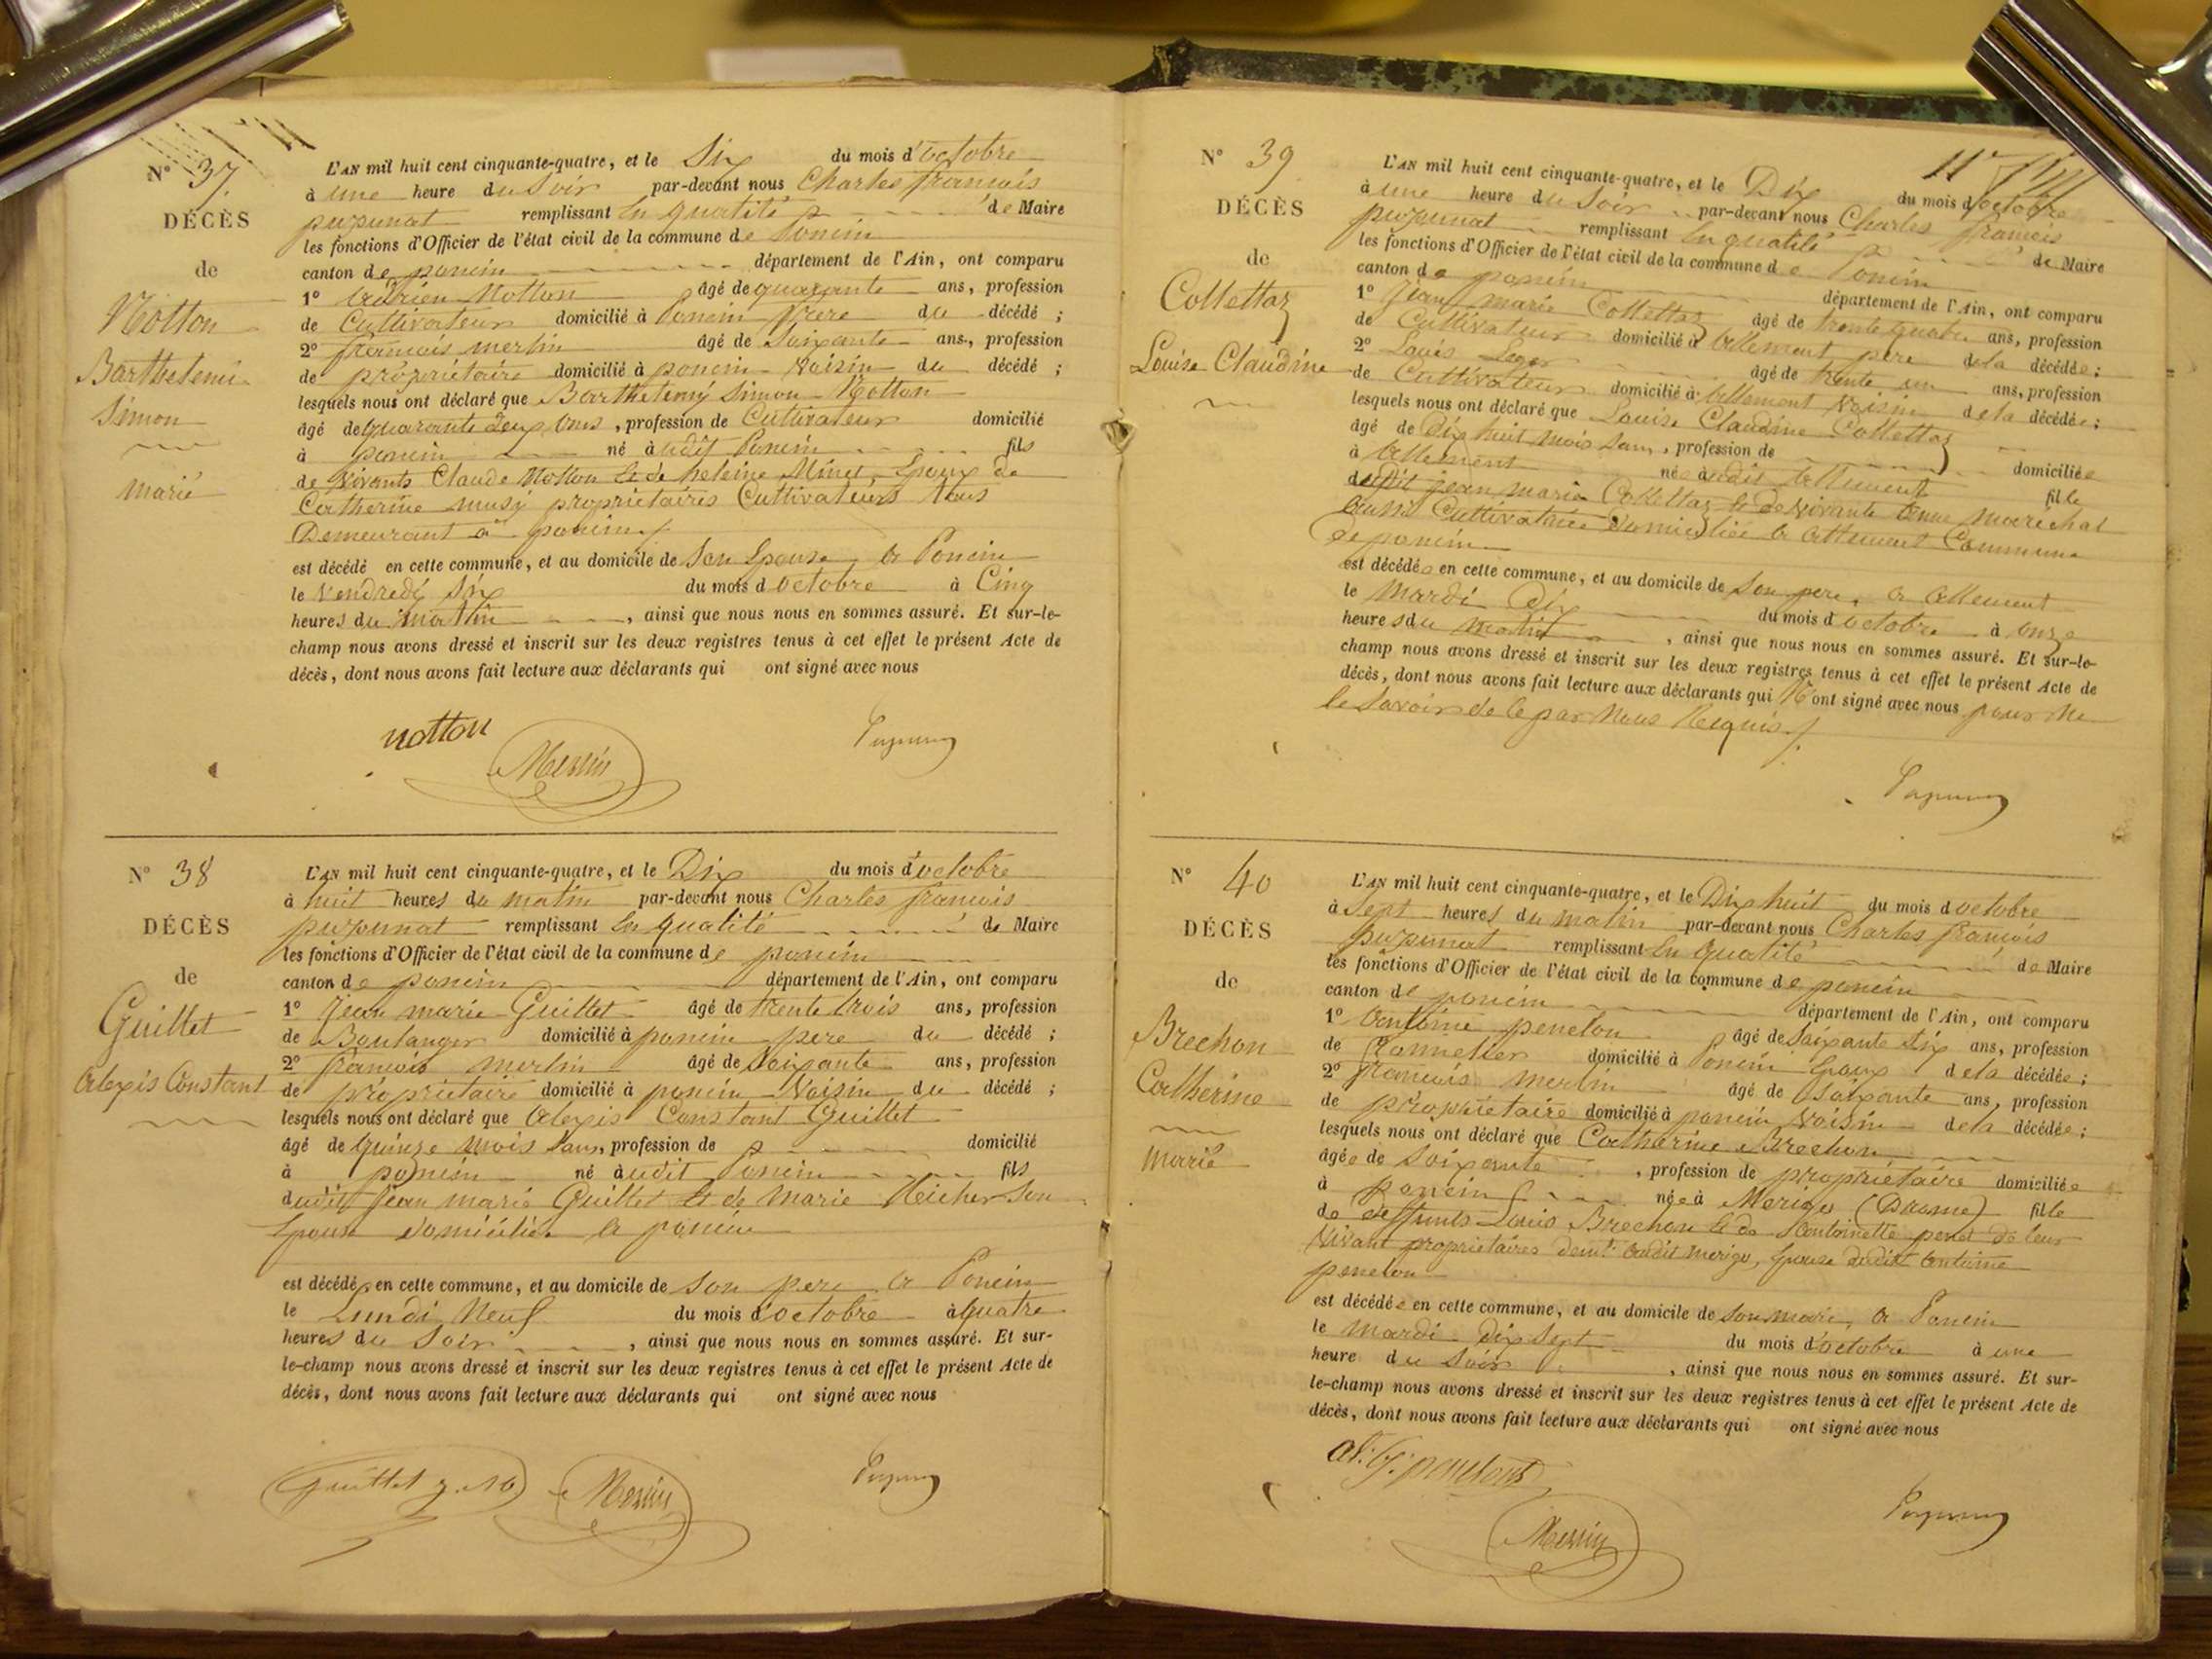 N° 37
DÉCÈS
de
Notton
Barthelemi
Simon
marié
L'AN mil huit cent cinquante-quatre, et le Six du mois d'octobre
à une heure du Soir par-devant nous Charles françois
pupunat remplissant En qualité de Maire
les fonctions d'Officier de l'état civil de la commune de Poncin
canton de poncin département de l'Ain, ont comparu
1° Adrien Notton âgé de quarante ans, profession
de Cultivateur domicilié à Poncin frère du décédé ;
2° françois merlin âgé de Soixante ans, profession
de propriétaire domicilié à poncin Voisin du décédé ;
lesquels nous ont déclaré que Barthelemy Simon Notton
âgé de quarante deux ans, profession de Cultivateur domicilié
à poncin né audit Poncin fils
de vivants Claude Notton Et de heleine Minet, Epoux de
Catherine musy propriétaires Cultivateurs tous
Demeurant à poncin
est décédé en cette commune, et au domicile de Son Epouse a Poncin
le Vendredy Six du mois d octobre à Cinq
heures du matin, ainsi que nous nous en sommes assuré. Et sur-le-
champ nous avons dressé et inscrit sur les deux registres tenus à cet effet le présent Acte de
décès, dont nous avons fait lecture aux déclarants qui ont signé avec nous
notton
Merlin
N° 38
DÉCÈS
de
Guillet
Alexis Constant
L'AN mil huit cent cinquante-quatre, et le Dix du mois d'octobre
à huit heures du matin par-devant nous Charles françois
pupunat remplissant En qualité de Maire
les fonctions d'Officier de l'état civil de la commune de poncin
canton de poncin département de l'Ain, ont comparu
1° Jean marie Guillet âgé de trente trois ans, profession
de Boulanger domicilié à poncin pere du décédé ;
2° françois merlin âgé de Soixante ans, profession
de propriétaire domicilié à poncin Voisin du décédé ;
lesquels nous ont déclaré que Alexis Constant Guillet
âgé de quinze mois Sans, profession de domicilié
à poncin né audit Poncin fils
dudit Jean marie Guillet Et de Marie Son
Epouse domiciliés a poncin
est décédé en cette commune, et au domicile de Son pere a Poncin
le Lundi Neuf du mois d'octobre à quatre
heures du Soir, ainsi que nous nous en sommes assuré. Et sur-
le-champ nous avons dressé et inscrit sur les deux registres tenus à cet effet le présent Acte de
décès, dont nous avons fait lecture aux déclarants qui ont signé avec nous
Guillet J. M.
Merlin
N° 39
DÉCÈS
de
Collettaz
Louise Claudine
L'AN mil huit cent cinquante-quatre, et le Dix du mois d'octobre
à une heure du Soir par-devant nous Charles françois
pupunat remplissant En qualité de Maire
les fonctions d'Officier de l'état civil de la commune de Poncin
canton de poncin département de l'Ain, ont comparu
1° Jean marie Collettaz âgé de trente quatre ans, profession
de Cultivateur domicilié à allement pere de la décédée ;
2° Louis Leger âgé de trente un ans, profession
de Cultivateur domicilié à allement Voisin de la décédée ;
lesquels nous ont déclaré que Louise Claudine Collettaz
âgé de Dix huit mois Sans, profession de domiciliée
à allement née audit allement fille
dudit jean marie Collettaz Et de vivante anne maréchal
aussi Cultivatrice domiciliée a allement Commune
De poncin
est décédée en cette commune, et au domicile de Son pere, a allement
le Mardi Dix du mois d octobre à onze
heures du matin, ainsi que nous nous en sommes assuré. Et sur-le-
champ nous avons dressé et inscrit sur les deux registres tenus à cet effet le présent Acte de
décès, dont nous avons fait lecture aux déclarants qui N'ont signé avec nous pour ne
le Savoir de ce par Nous Requis
N° 40
DÉCÈS
de
Brechon
Catherine
marié
L'AN mil huit cent cinquante-quatre, et le Dix huit du mois d octobre
à Sept heures du matin par-devant nous Charles françois
pupunat remplissant En qualité de Maire
les fonctions d'Officier de l'état civil de la commune de poncin
canton de poncin département de l'Ain, ont comparu
1° Antoine peneton âgé de Soixante Six ans, profession
de Tonnellier domicilié à Poncin Epoux de la décédée ;
2° françois merlin âgé de Soixante ans, profession
de propriétaire domicilié à poncin Voisin de la décédée ;
lesquels nous ont déclaré que Catherine Brechon
âgée de Soixante, profession de propriétaire domiciliée
à poncin née à Merigo (Drome) fille
de deffunts Louis Brechon Et de Antoinette penet de leur
vivant propriétaires demt. audit merigo, Epouse dudit antoine
peneton
est décédée en cette commune, et au domicile de Son mari, a Poncin
le mardi Dix Sept du mois d'octobre à une
heure du Soir, ainsi que nous nous en sommes assuré. Et sur-
le-champ nous avons dressé et inscrit sur les deux registres tenus à cet effet le présent Acte de
décès, dont nous avons fait lecture aux déclarants qui ont signé avec nous
Merlin